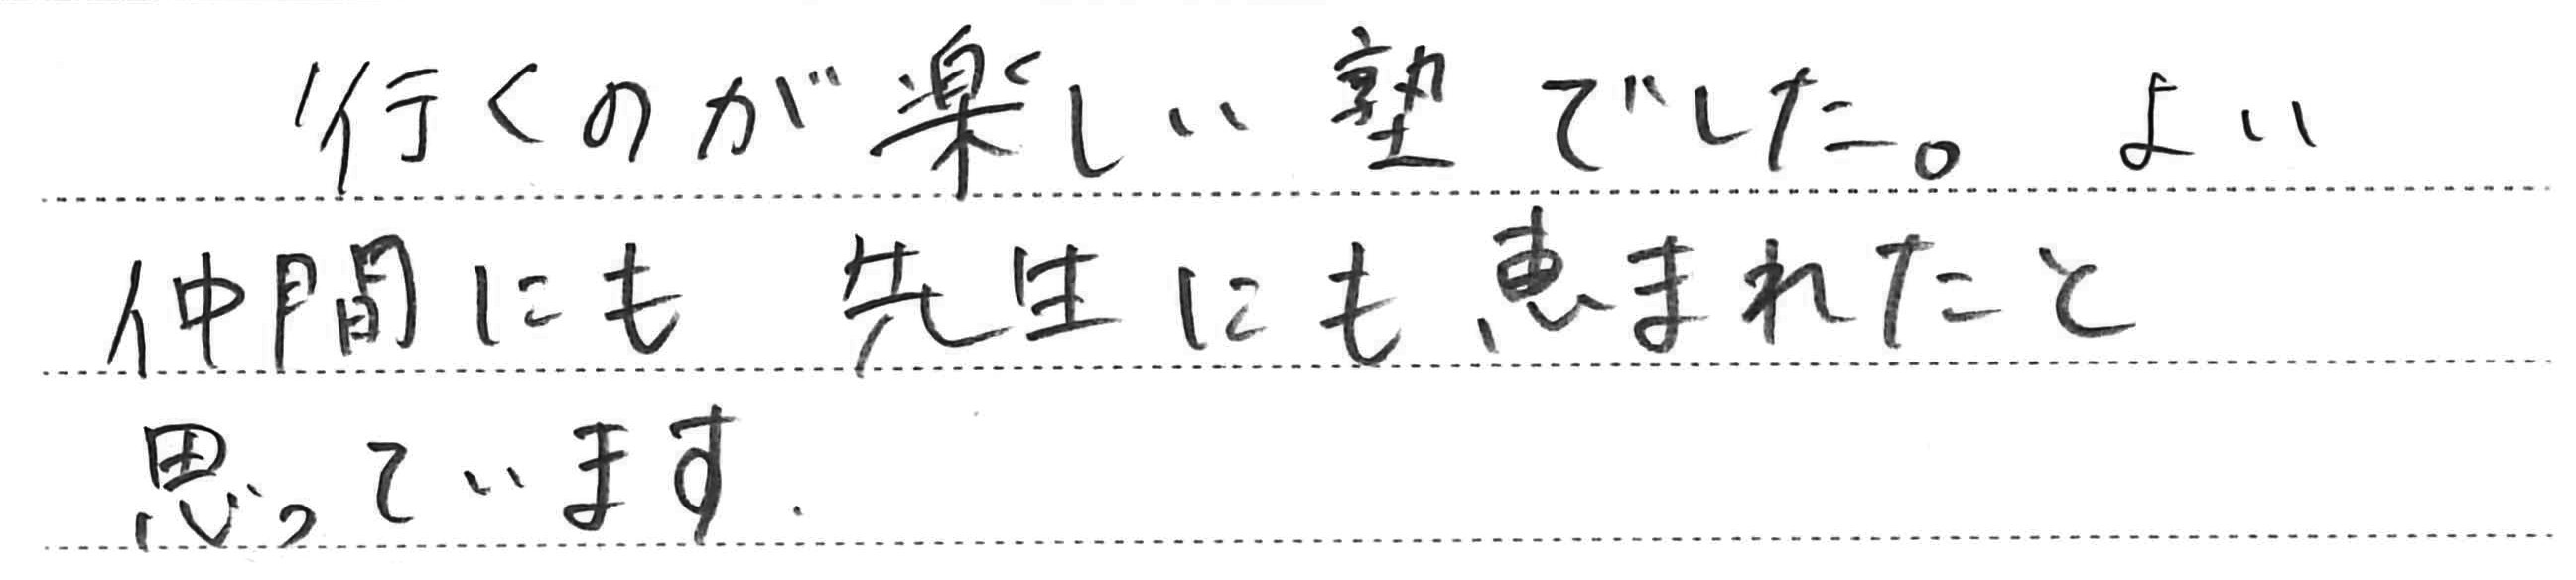 行くのが楽しい塾でした。よい
仲間にも先生にも恵まれたと
思っています.